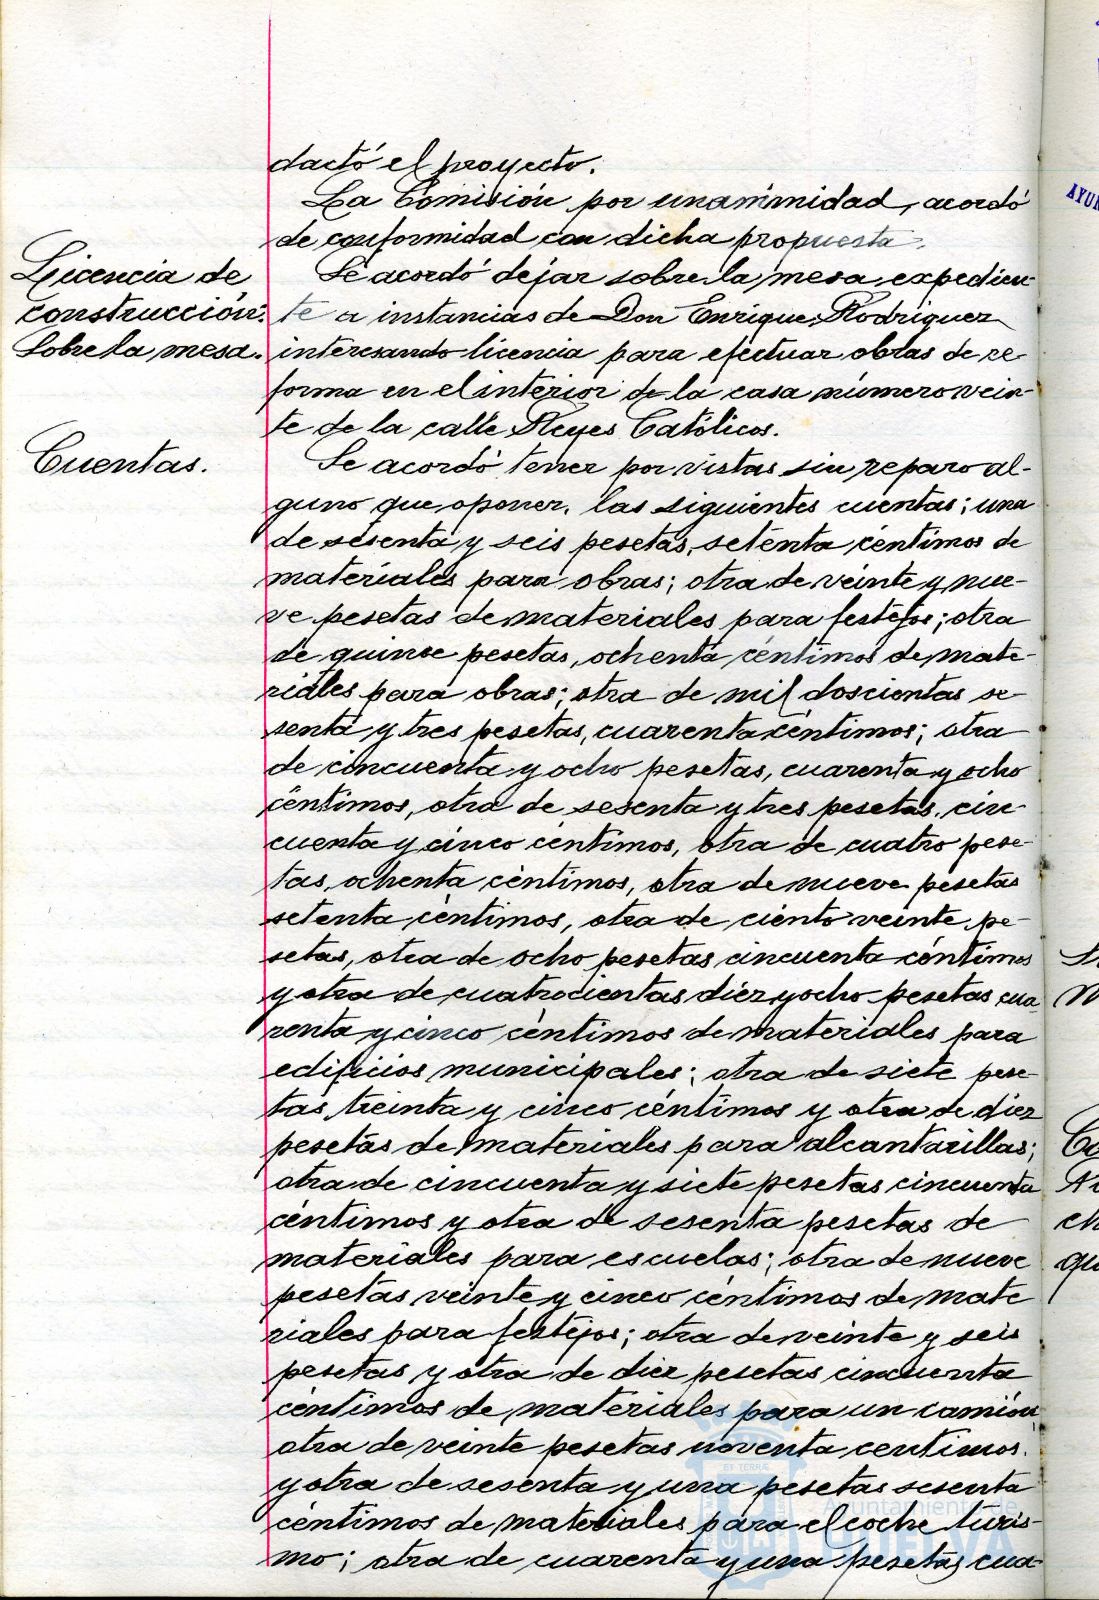 dactó el proyecto.
La Comisión por unanimidad, acordó
de conformidad con dicha propuesta.
Licencia de
construcción.
Sobre la mesa.
Se acordó dejar sobre la mesa expedien-
te a instancias de Don Enrique Rodriguez
interesando licencia para efectuar obras de re-
forma en el interior de la casa número vein-
te de la calle Reyes Católicos.
Cuentas.
Se acordó tener por vistas sin reparo al-
guno que oponer, las siguientes cuentas; una
de sesenta y seis pesetas, setenta céntimos de
materiales para obras; otra de veinte y nue-
ve pesetas de materiales para festejos; otra
de quince pesetas, ochenta céntimos de mate-
riales para obras; otra de mil doscientas se-
senta y tres pesetas, cuarenta céntimos; otra
de cincuenta y ocho pesetas, cuarenta y ocho
céntimos, otra de sesenta y tres pesetas, cin-
cuenta y cinco céntimos, otra de cuatro pese-
tas, ochenta céntimos, otra de nueve pesetas
setenta céntimos, otra de ciento veinte pe-
setas, otra de ocho pesetas cincuenta céntimos
y otra de cuatrocientas diez y ocho pesetas cua-
renta y cinco céntimos de materiales para
edificios municipales; otra de siete pese-
tas treinta y cinco céntimos y otra de diez
pesetas de materiales para alcantarillas;
otra de cincuenta y siete pesetas cincuenta
céntimos y otra de sesenta pesetas de
materiales para escuelas; otra de nueve
pesetas veinte y cinco céntimos de mate
riales para festejos; otra de veinte y seis
pesetas y otra de diez pesetas cincuenta
céntimos de materiales para un camión,
otra de veinte pesetas noventa centimos.
y otra de sesenta y una pesetas sesenta
céntimos de materiales para el coche turis-
mo; otra de cuarenta y una pesetas cua-
AYUN
Ayuntamiento de
HUELVA